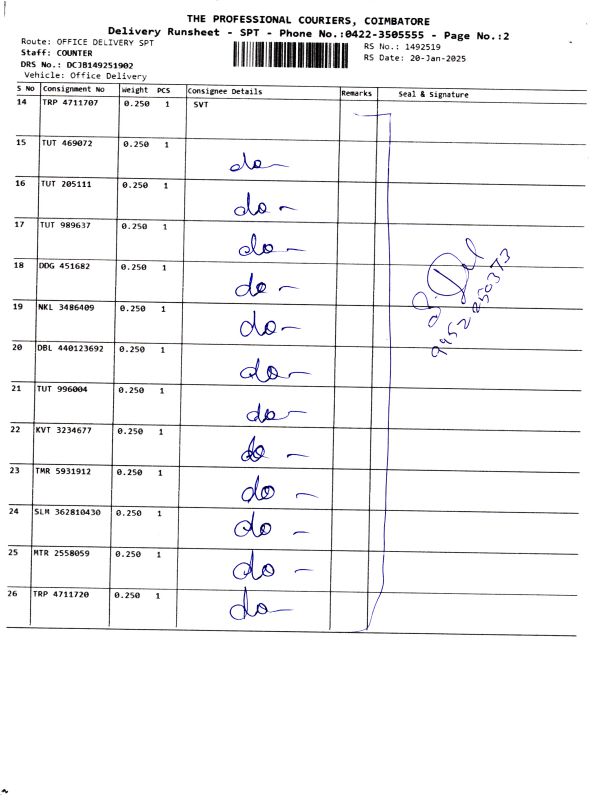 THE PROFESSIONAL COURIERS, COIMBATORE
Delivery Runsheet - SPT - Phone No.:0422-3505555 - Page No.:2
Route: OFFICE DELIVERY SPT
Staff: COUNTER
DRS No.: DCJB149251902
Vehicle: Office Delivery
RS No.: 1492519
RS Date: 20-Jan-2025
S No Consignment No Weight PCS Consignee Details Remarks Seal & Signature
14 TRP 4711707 0.250 1 SVT
15 TUT 469072 0.250 1 do -
16 TUT 205111 0.250 1 do -
17 TUT 989637 0.250 1 do -
18 DDG 451682 0.250 1 do -
19 NKL 3486409 0.250 1 do -
20 DBL 440123692 0.250 1 do -
21 TUT 996004 0.250 1 do -
22 KVT 3234677 0.250 1 do -
23 TMR 5931912 0.250 1 do -
24 SLM 362810430 0.250 1 do -
25 MTR 2558059 0.250 1 do -
26 TRP 4711720 0.250 1 do -